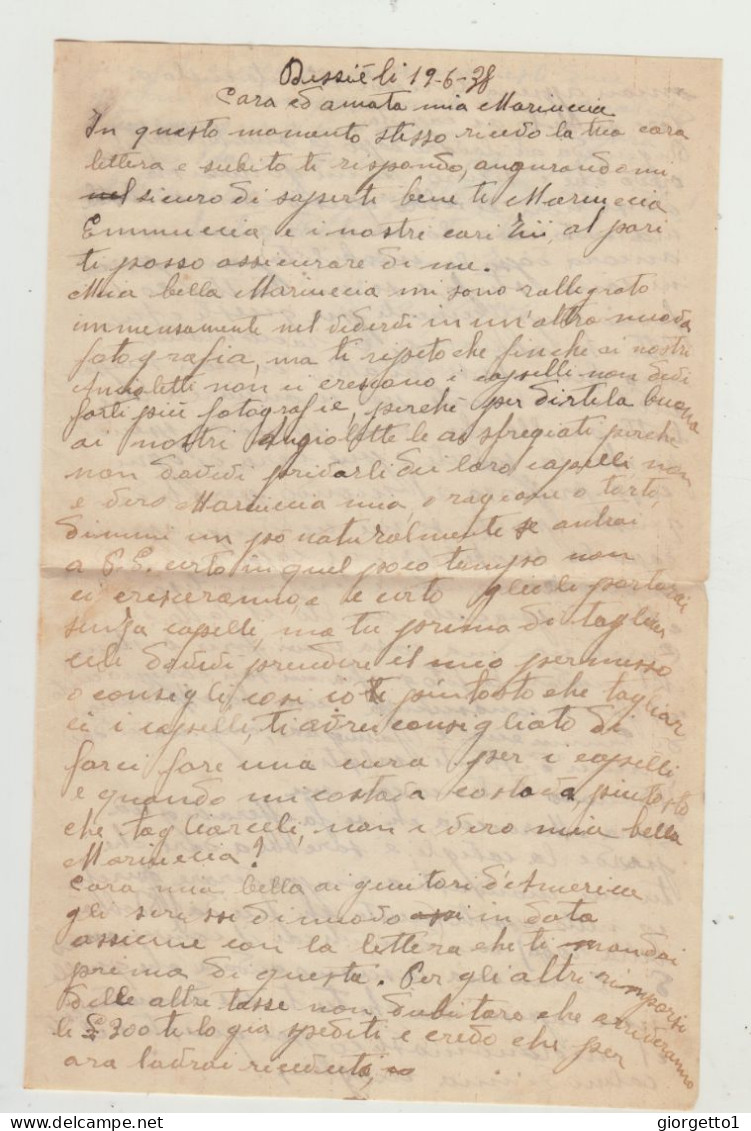 Dessiè li 19-6-38
Cara ed amata mia Mariuccia
In questo momento stesso ricedo la tua cara
lettera e subito ti rispondo, augurandomi
nel sicuro di saperti bene te Mariuccia
Emmuccia, e i nostri cari Zii, al pari
ti posso assicurare di me.
Mia bella Mariuccia mi sono rallegrato
immensamente nel dederdi in un'altra nuoda
fotografia, ma ti repeto che finche ai nostri
Angioletti non ci crescono i capelli non dedi
farti più fotografie, perchè per dirtela buona
ai nostri angiolette le ai sfregiati perche
non dadedi pridarli dei loro capelli non
e dero Mariuccia mia, o ragione o torto,
dimmi un po naturalmente se andrai
a P.E. certo in quel poco tempo non
ci cresceranno e certo glie li porterai
senza capelli, ma tu prima di tagliar
celi dodedi prendere il mio permesso
o consigli cosi io te piutosto che tagliar
ci i capelli, ti adrei consigliato di
farci fare una cura per i capelli
e quando mi costada costada, piutosto
che tagliarceli, non e dero mia bella
Mariuccia?
Cara mia bella ai genitori d'America
gli scrissi dinuodo in data
assieme con la lettera che ti mandai
prima di questa. Per gli altri rimborsi
delle altre tasse non dubitare che arrideranno
le £300 te lo gia spediti e credo che per
ora ladrai ricedute,
giorgetto1